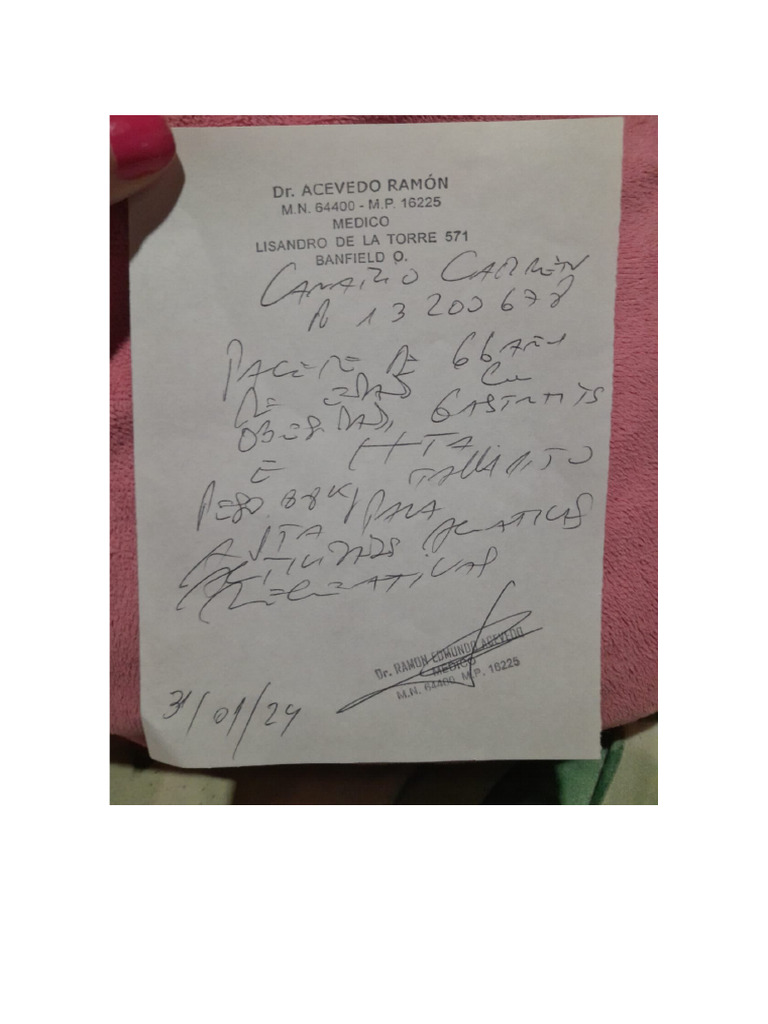 Dr. ACEVEDO RAMÓN
M.N. 64400 - M.P. 16225
MEDICO
LISANDRO DE LA TORRE 571
BANFIELD O.
CARMEN
13 200 678
PACIENTE DE 66 AÑOS
DE EDAD CON
OBESIDAD, GASTRITIS
E HTA
PESO 88K
APTA PARA
ACTIVIDADES ACUATICAS
RECREATIVAS
Dr. RAMON EDMUNDO ACEVEDO
MEDICO
M.N. 64400 M.P. 16225
31/01/24